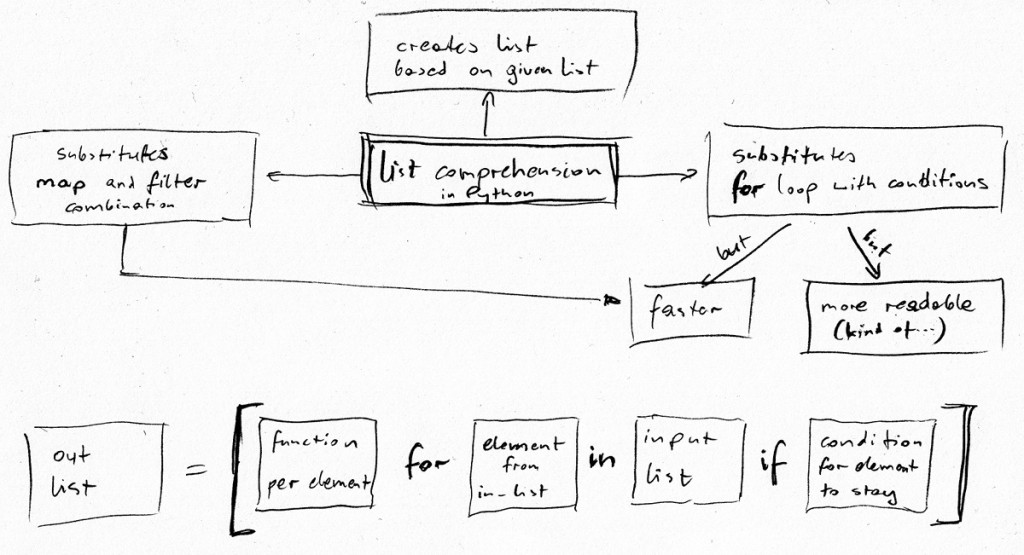 creates list
based on given list
substitutes
map and filter
combination
list comprehension
in Python
substitutes
for loop with conditions
but
but
faster
more readable
(kind of...)
out
list
=
[
function
per element
for
element
from
in-list
in
input
list
if
condition
for element
to stay
]